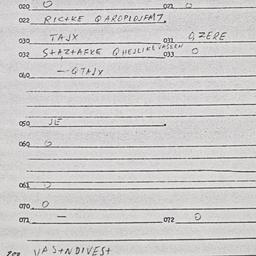 020 0 021 0
022 RICTKE QAROPLDJFMT.
030 TAJX 031 Q,ZERE
032 STAZTAFKE QHEJLIKEVASERN 033 0
040 — QTAJX
050 JE
060 0
061 0
070 0
071 — 072 0
VASTNDIVEST